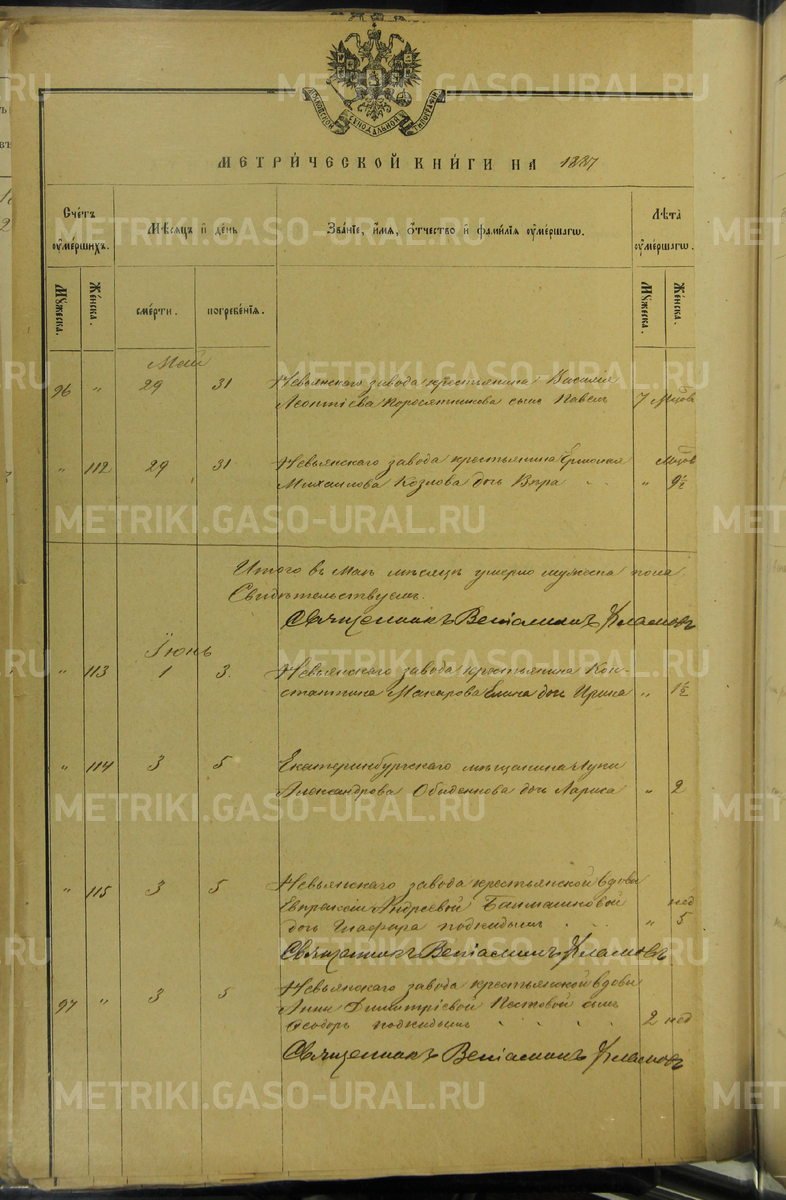 МОСКОВСКОЙ СѴНОДАЛЬНОЙ ТИПОГРАФІИ
МЕТРИ́ЧЕСКОЙ КНИ́ГИ НА 1887
Сче́тъ оуме́ршихъ.
Мѣ́сяцъ и день
Зва́ніе, и́мя, о́тчество и фами́лія оуме́ршагѡ.
Лѣта̀ оуме́ршагѡ.
Му́жеска.
Же́нска.
сме́рти.
погребе́нія.
Му́жеска.
Же́нска.
Май
96 " 29 31 Невьянскаго завода крестьянина Василія
Леонтіева Коросятникова сынъ Павелъ 7 мѣсов
" 112 29 31 Невьянскаго завода крестьянина Ермолая мѣсов
Михаилова Козлова дочь Вѣра " 9½
Итого въ маѣ мѣсяцѣ умерло мужеска пола
Свидѣтельствуемъ.
Священникъ Веніаминъ
Іюнь
" 113 1 3. Невьянскаго завода крестьянина Кон-
стантина Макарова Елина дочь Ирина " 1½
" 114 3 5 Екатеринбургскаго мѣщанина Луки
Александрова Обыденнова дочь Лариса " 2
" 115 3 5 Невьянскаго завода крестьянской вдовы
Евпраксіи Андреевой Башмашковой нед
дочь Глафира подкидышъ " 5
Священникъ Веніаминъ
97 " 3 5 Невьянскаго завода крестьянской вдовы
Анны Димитріевой Пестовой сынъ
Ѳеодоръ подкидышъ 2 нед
Священникъ Веніаминъ
METRIKI.GASO-URAL.RU